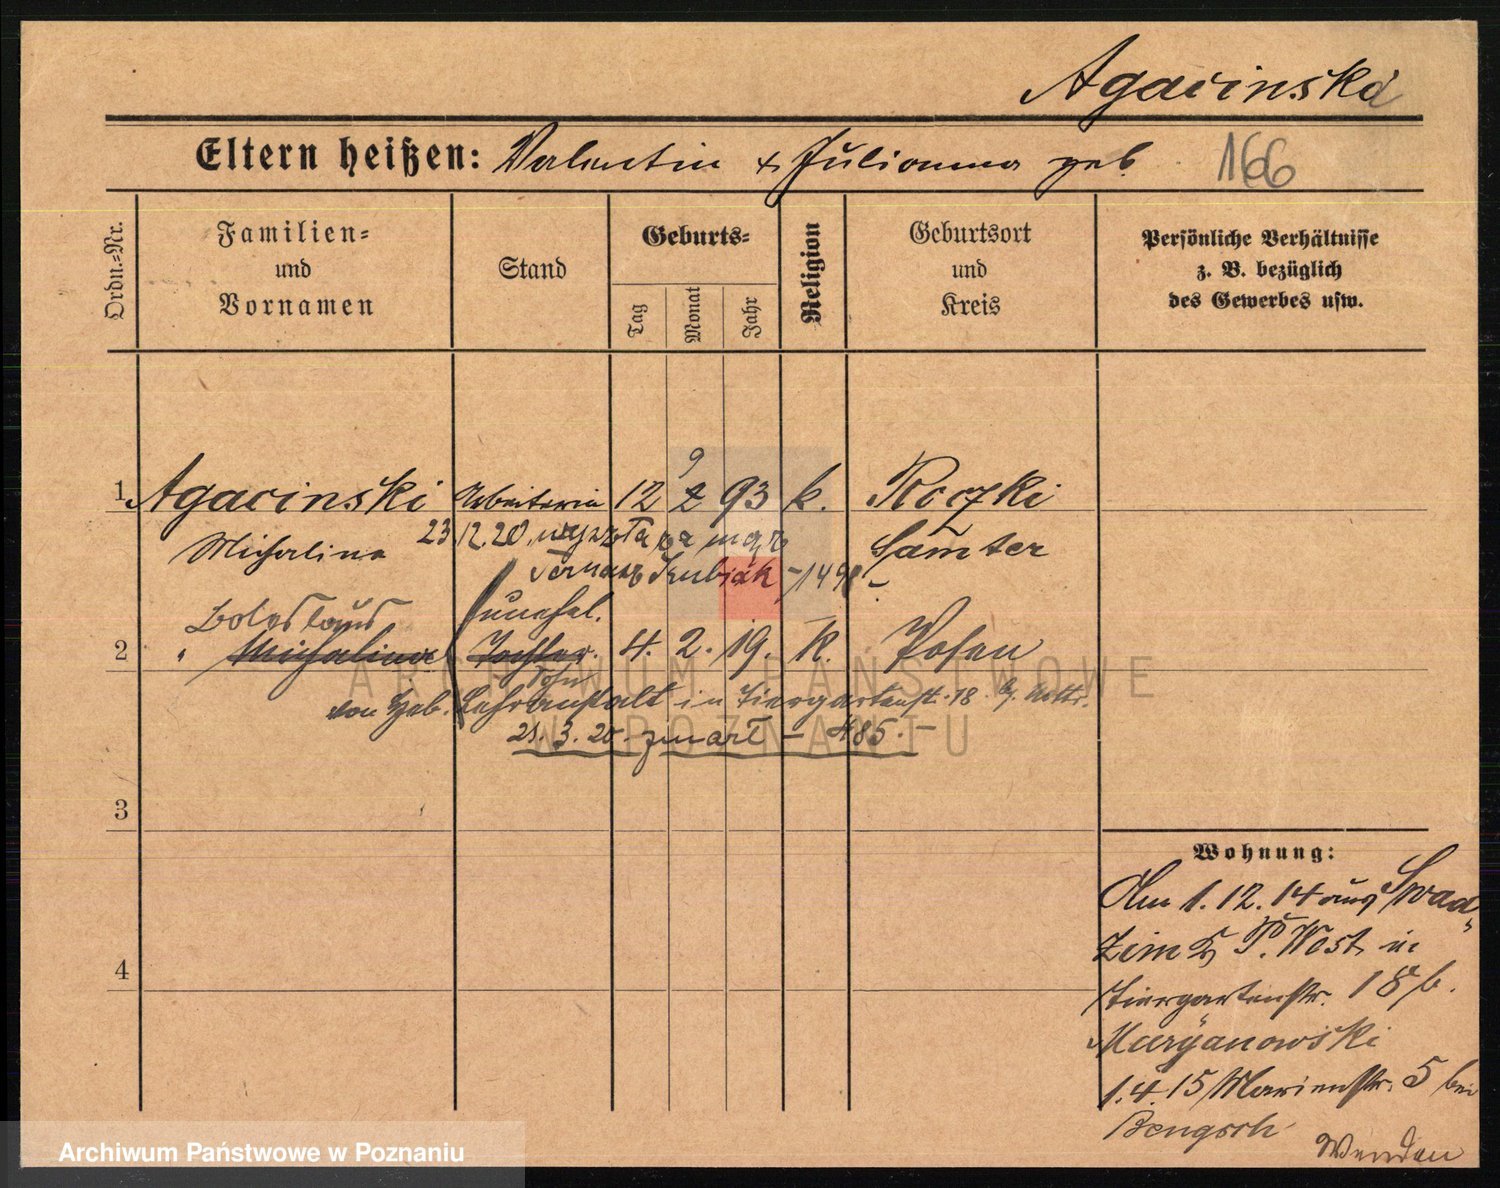 Agacinski
Eltern heißen: Valentin & Julianna geb. 166
Ordn.-Nr.
Familien-
und
Vornamen
Stand
Geburts-
Tag
Monat
Jahr
Religion
Geburtsort
und
Kreis
Persönliche Verhältnisse
z. B. bezüglich
des Gewerbes usw.
9
1 Agacinski Arbeiterin 12 2 93 k. Roczki
Michalina Samter
23.12.20. wyszła za mąż
Kubiak - 1498 -
Boleslaus unehel.
2 " Michalina Tochter. 4. 2. 19. K. Posen
Sohn
von Geb. Lehranstalt in Tiergartenstr. 18 b/ Mttr.
21. 3. 20. zmarł - 485. -
3
4
Wohnung:
Am 1.12.14 aus Swad-
zim Kr P. West in
Tiergartenstr. 18 b.
Maryanowski
1.4.15 Marienstr. 5 bei
Bengsch
Wenden
ARCHIWUM PAŃSTWOWE
W POZNANIU
Archiwum Państwowe w Poznaniu